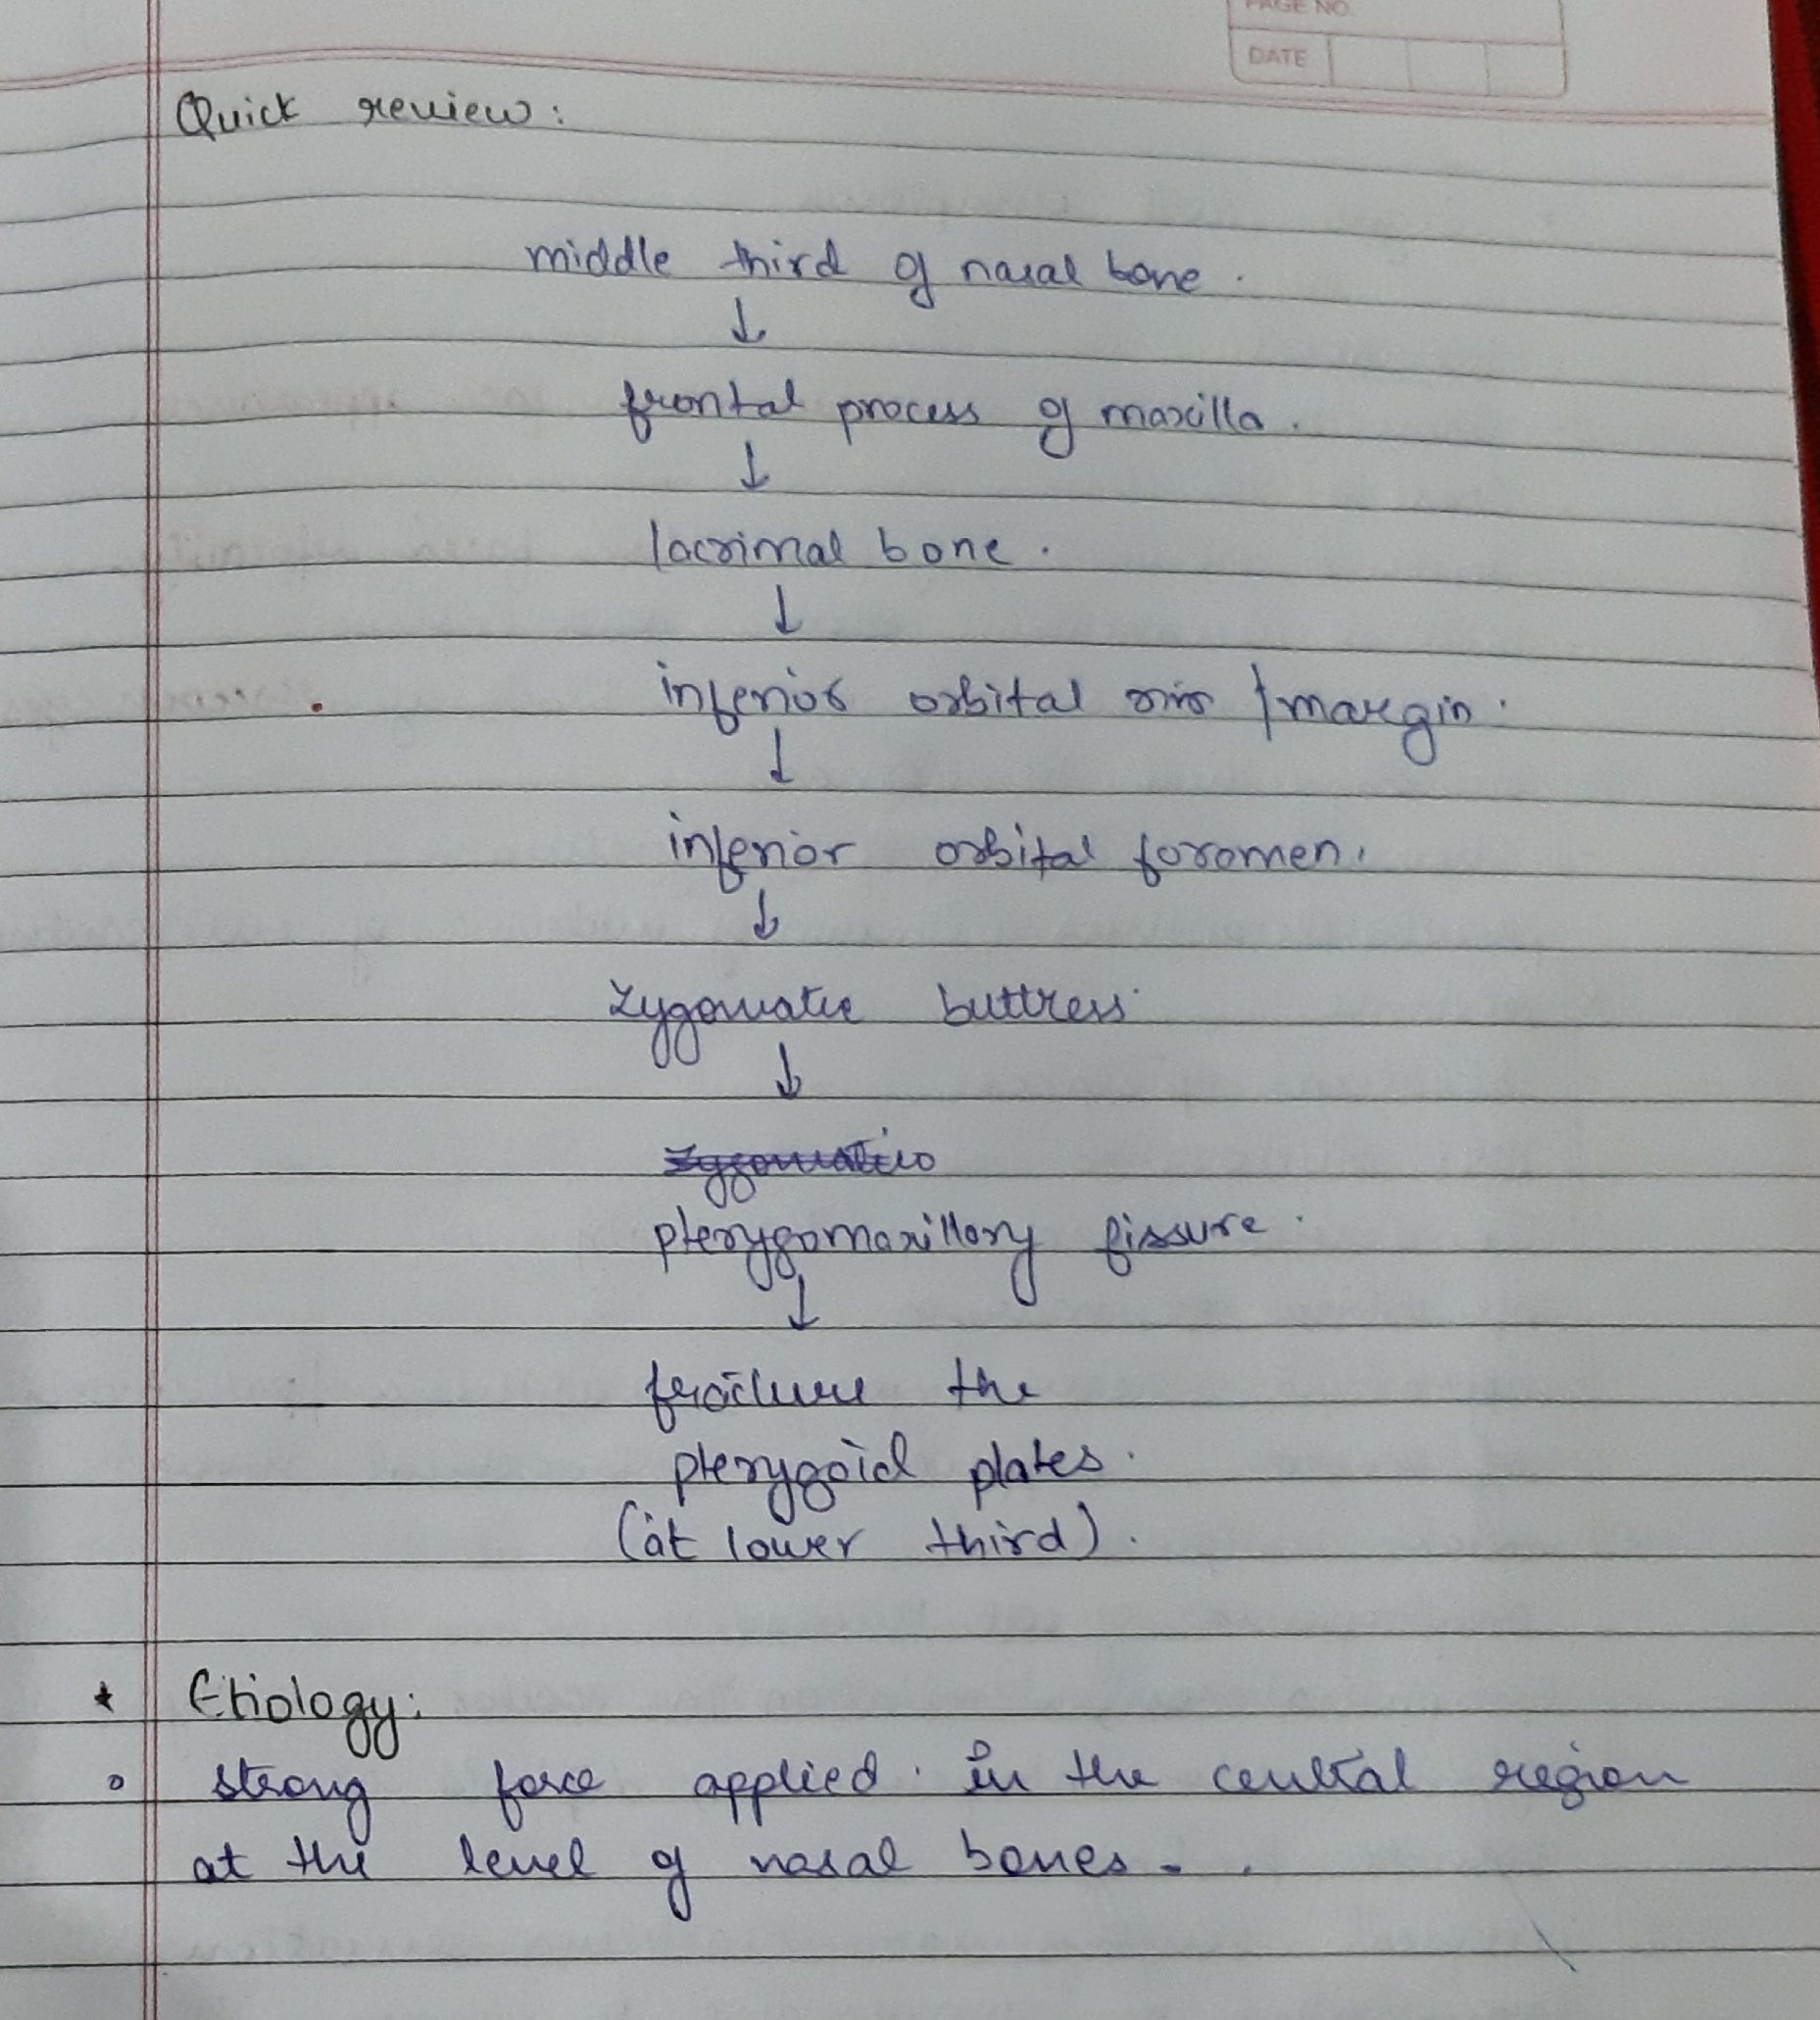 PAGE NO.
DATE
Quick review:
middle third of nasal bone.
↓
frontal process of maxilla.
↓
lacrimal bone.
↓
inferior orbital rim /margin.
↓
inferior orbital foramen.
↓
zygomatic buttress.
↓
zygomatic
pterygomaxillary fissure.
↓
fracture the
pterygoid plates.
(at lower third).
* Etiology:
o strong force applied. in the central region
at the level of nasal bones.